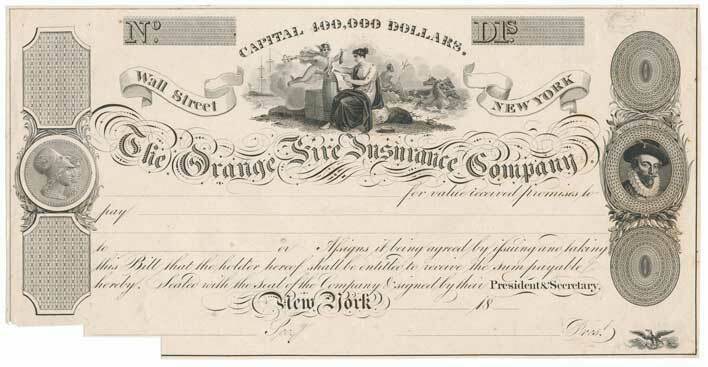 No.
CAPITAL 400,000 DOLLARS.
Dls.
Wall Street
NEW YORK
The Orange Fire Insurance Company
for value received promises to
pay
to or Assigns it being agreed by issuing and taking
this Bill that the holder hereof shall be entitled to receive the sum payable
hereby. Sealed with the seal of the Company & signed by their President & Secretary.
New York 18
Secy. Prest.